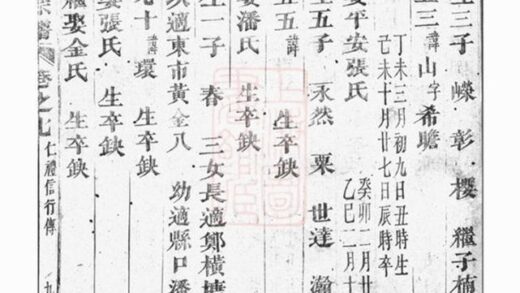 生三子 嶸 彰 櫻 繼子楠
三 諱山字希瞻
丁未三月初九日丑時生
己未十月廿七日辰時卒
娶平安張氏
癸卯二月廿
乙巳二月十
生五子 永然 粟 世達 瀚
五五 諱 生卒鈌
娶潘氏 生卒鈌
生一子 春 三女長適鄭橫塘
次適東市黃金八 幼適縣口潘
七十 諱環 生卒鈌
娶張氏 生卒鈌
繼娶金氏 生卒鈌
卷之九 仁禮信行傳